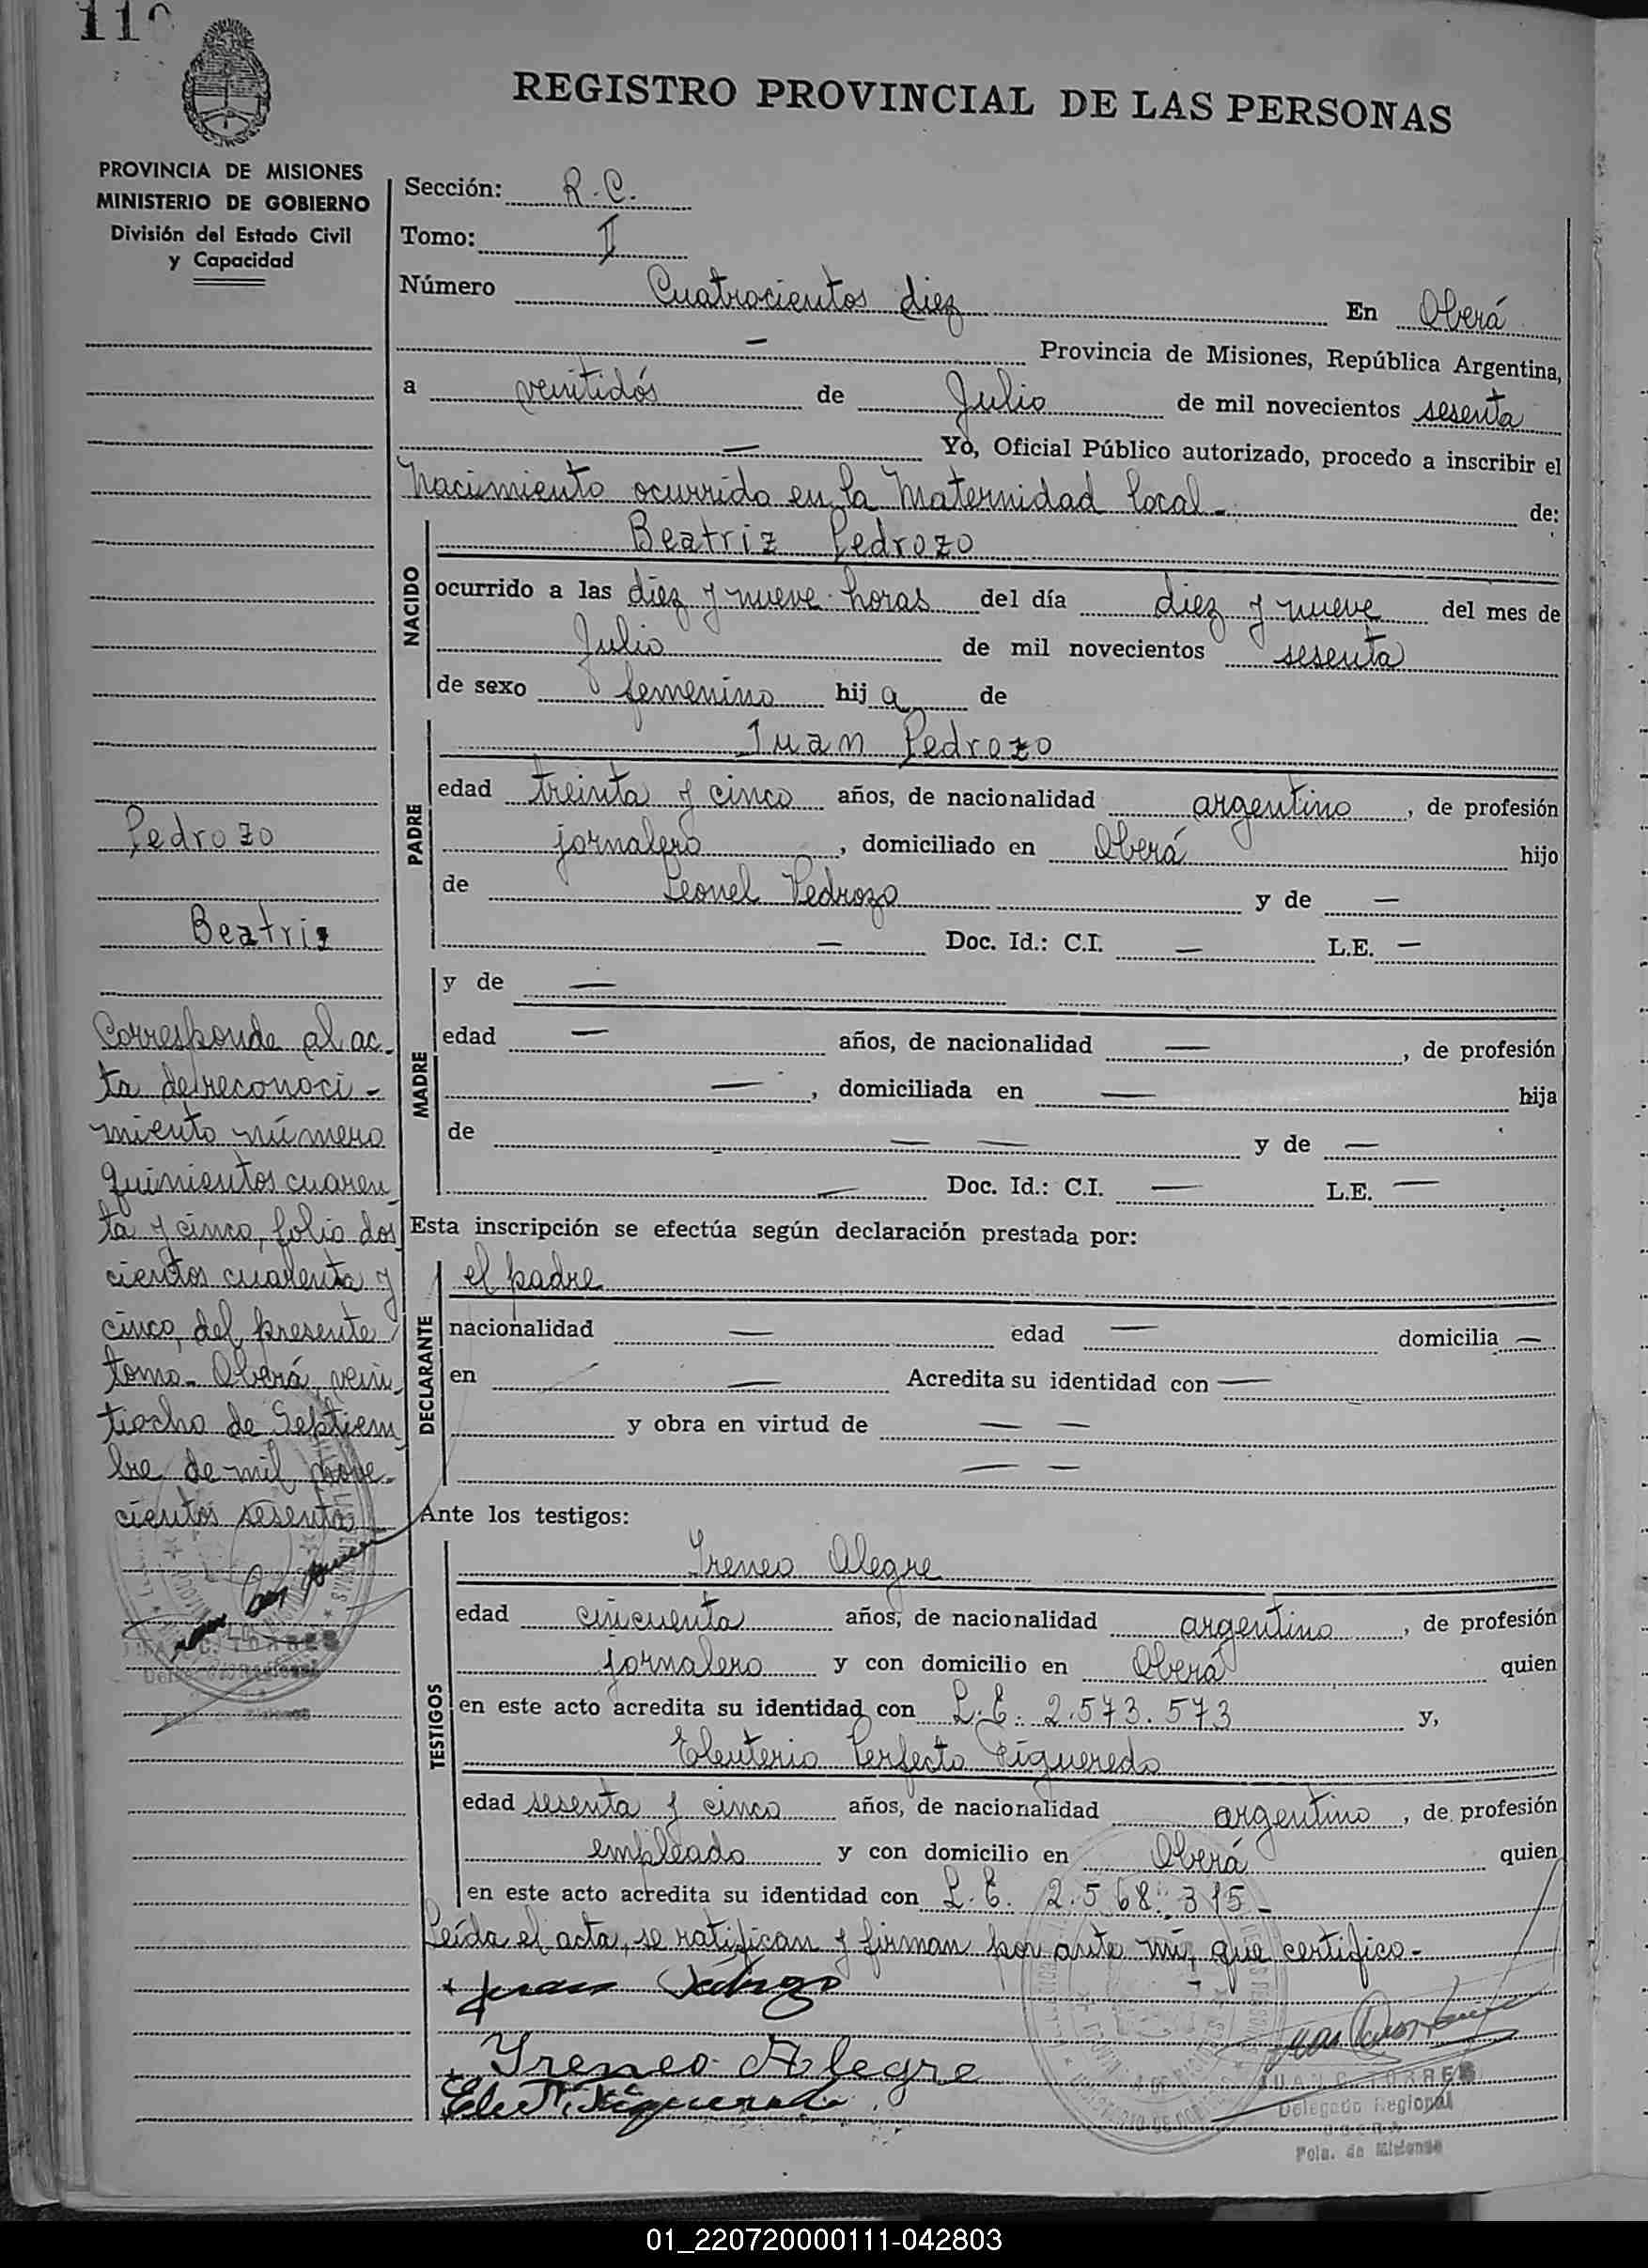 110
REGISTRO PROVINCIAL DE LAS PERSONAS
PROVINCIA DE MISIONES
MINISTERIO DE GOBIERNO
División del Estado Civil
y Capacidad
Sección: R. C.
Tomo: II
Número Cuatrocientos diez En Oberá
— Provincia de Misiones, República Argentina,
a veintidós de Julio de mil novecientos sesenta
— Yo, Oficial Público autorizado, procedo a inscribir el
Nacimiento ocurrido en la Maternidad local - de:
NACIDO
Beatriz Pedrozo
ocurrido a las diez y nueve horas del día diez y nueve del mes de
Julio de mil novecientos sesenta
de sexo femenino hij a de
PADRE
Juan Pedrozo
edad treinta y cinco años, de nacionalidad argentino, de profesión
jornalero, domiciliado en Oberá hijo
de Leonel Pedrozo y de —
— Doc. Id.: C.I. — L.E. —
MADRE
y de —
edad — años, de nacionalidad —, de profesión
—, domiciliada en — hija
de — — y de —
— Doc. Id.: C.I. — L.E. —
Esta inscripción se efectúa según declaración prestada por:
DECLARANTE
el padre
nacionalidad — edad — domicilia —
en — Acredita su identidad con —
y obra en virtud de — —
— —
Ante los testigos:
TESTIGOS
Ireneo Alegre
edad cincuenta años, de nacionalidad argentino, de profesión
jornalero y con domicilio en Oberá quien
en este acto acredita su identidad con L. E. 2.573.573 y,
Eleuterio Perfecto Figueredo
edad sesenta y cinco años, de nacionalidad argentino, de profesión
empleado y con domicilio en Oberá quien
en este acto acredita su identidad con L. E. 2.568.315 -
Leída el acta, se ratifican y firman por ante mí, que certifico -
+ Juan Pedrozo
+ Ireneo Alegre
Eleut. P. Figueredo
JUAN C. TORRES
Delegado Regional
OBERA
Pcia. de Misiones
Pedrozo
Beatriz
Corresponde al ac-
ta de reconoci-
miento número
quinientos cuaren
ta y cinco, folio dos
cientos cuarenta y
cinco, del presente
tomo - Oberá, vein
tiocho de Septiem
bre de mil nove-
cientos sesenta
JUAN C. TORRES
Delegado Regional
01_220720000111-042803